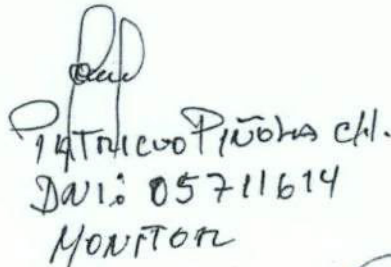 PATRICIO PIÑOLA CH.
DNI: 05711614
MONITOR